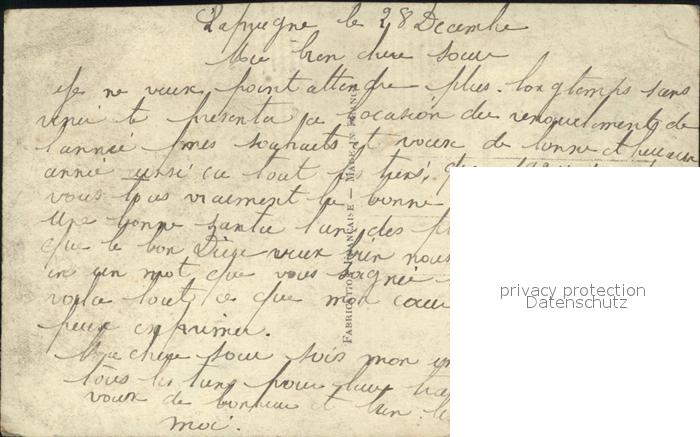 Lapugne le 28 Decembre
Ma bien chere soeur
Je ne veux point attendre plus longtemps sans
venir te presenter a l'ocasion du renouvelement de
l'année mes souhaits et voeux de bonne et heureuse
année ainsi ca tout
vous tous vraiment la bonne
Une bonne santée l'un des
que le bon Dieu veux bien nous
en un mot que vous
voila tout ce que mon coeur
peux exprimer.
Ma chere soeur sois mon
tous les tiens pour leur
voeux de bonheur et bien
moi.
FABRICATION FRANÇAISE — MADE IN FRANCE
privacy protection
Datenschutz